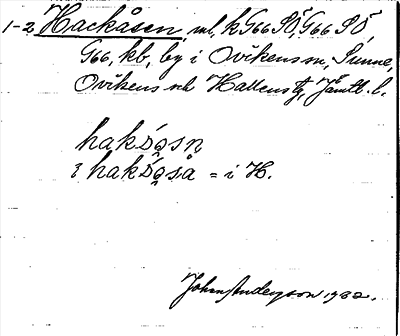 1-2 Hackåsen, ml, k G66 SÖ, G66 SÖ,
G66, kb, by i Ovikens sn, Sunne,
Ovikens o. Hallens tg, Jämtl. l.
hakǻsn
i hakǻså = i H.
John Anderson 1932.